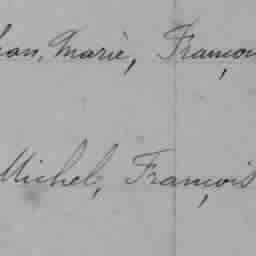 Jean, Marie, Françoi
Michel, François